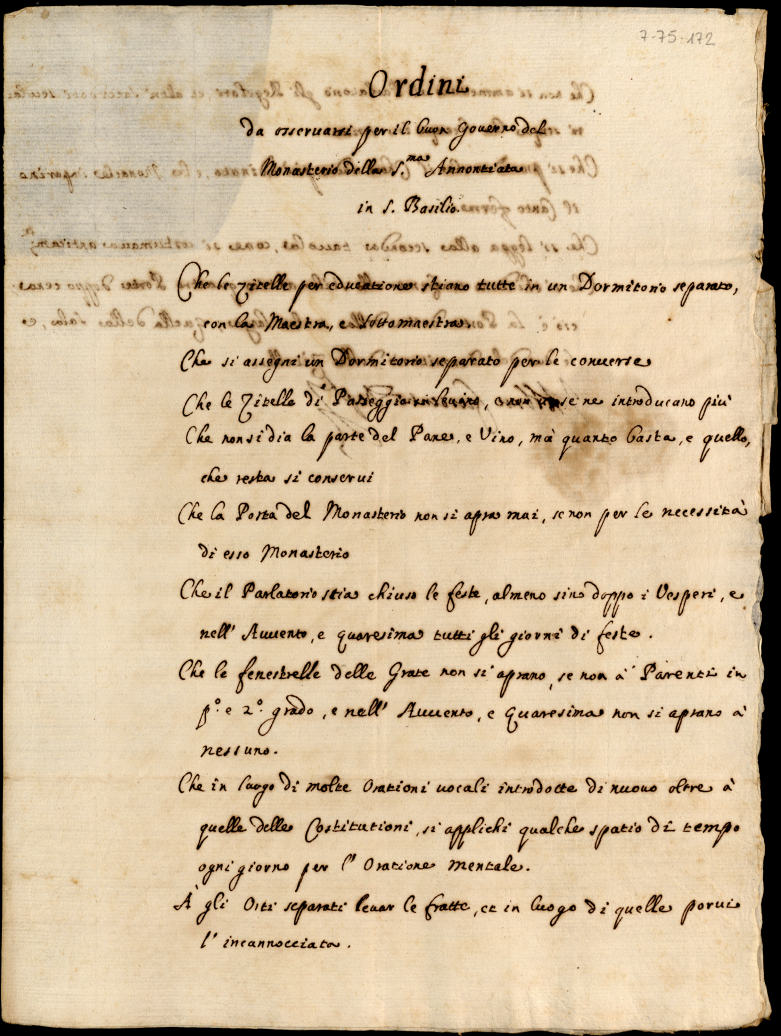 7-75-172
Ordini
da osseruarsi per il buon Gouerno del
Monasterio della S.ma Annontiata
in S. Basilio.
Che le Zitelle per educatione stiano tutte in un Dormitorio separato,
con la Maestra, e Sottomaestra
Che si assegni un Dormitorio separato per le conuerse
Che le Zitelle di Passeggio, e non se ne introducano più
Che non si dia la parte del Pane, e Vino, mà quanto basta, e quello,
che resta si conserui
Che la Porta del Monasterio non si apra mai, se non per le necessità
di esso Monasterio
Che il Parlatorio stia chiuso le feste, almeno sino doppo i Vesperi, e
nell' Auuento, e quaresima tutti gli giorni di feste.
Che le fenestrelle delle Grate non si aprano, se non à Parenti in
p.o e 2.o grado, e nell' Auuento, e Quaresima non si aprano à
nessuno.
Che in luogo di molte Orationi uocali introdotte di nuouo oltre à
quelle delle Costitutioni, si applichi qualche spatio di tempo
ogni giorno per l' Oratione mentale.
À gli Orti separati leuar le fratte, et in luogo di quelle porui
l' incannocciata.